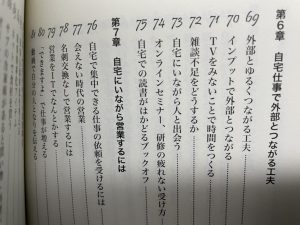 第6章 自宅仕事で外部とつながる工夫
69 外部とゆるくつながる工夫
70 インプットで外部とつながる
71 TVをみないことで時間をつくる
72 雑談不足をどうするか
73 自宅にいながら人と出会う
74 オンラインセミナー、研修の疲れない受け方
75 自宅での読書がはかどるブックオフ
第7章 自宅にいながら営業するには
76 自宅で集中できる仕事の依頼を受けるには
77 会えない時代の営業
78 名刺交換なしで営業するには
79 営業をITでなんとかする
80 「できますよ」で仕事が増える
81 動画で自分の人となりを伝える